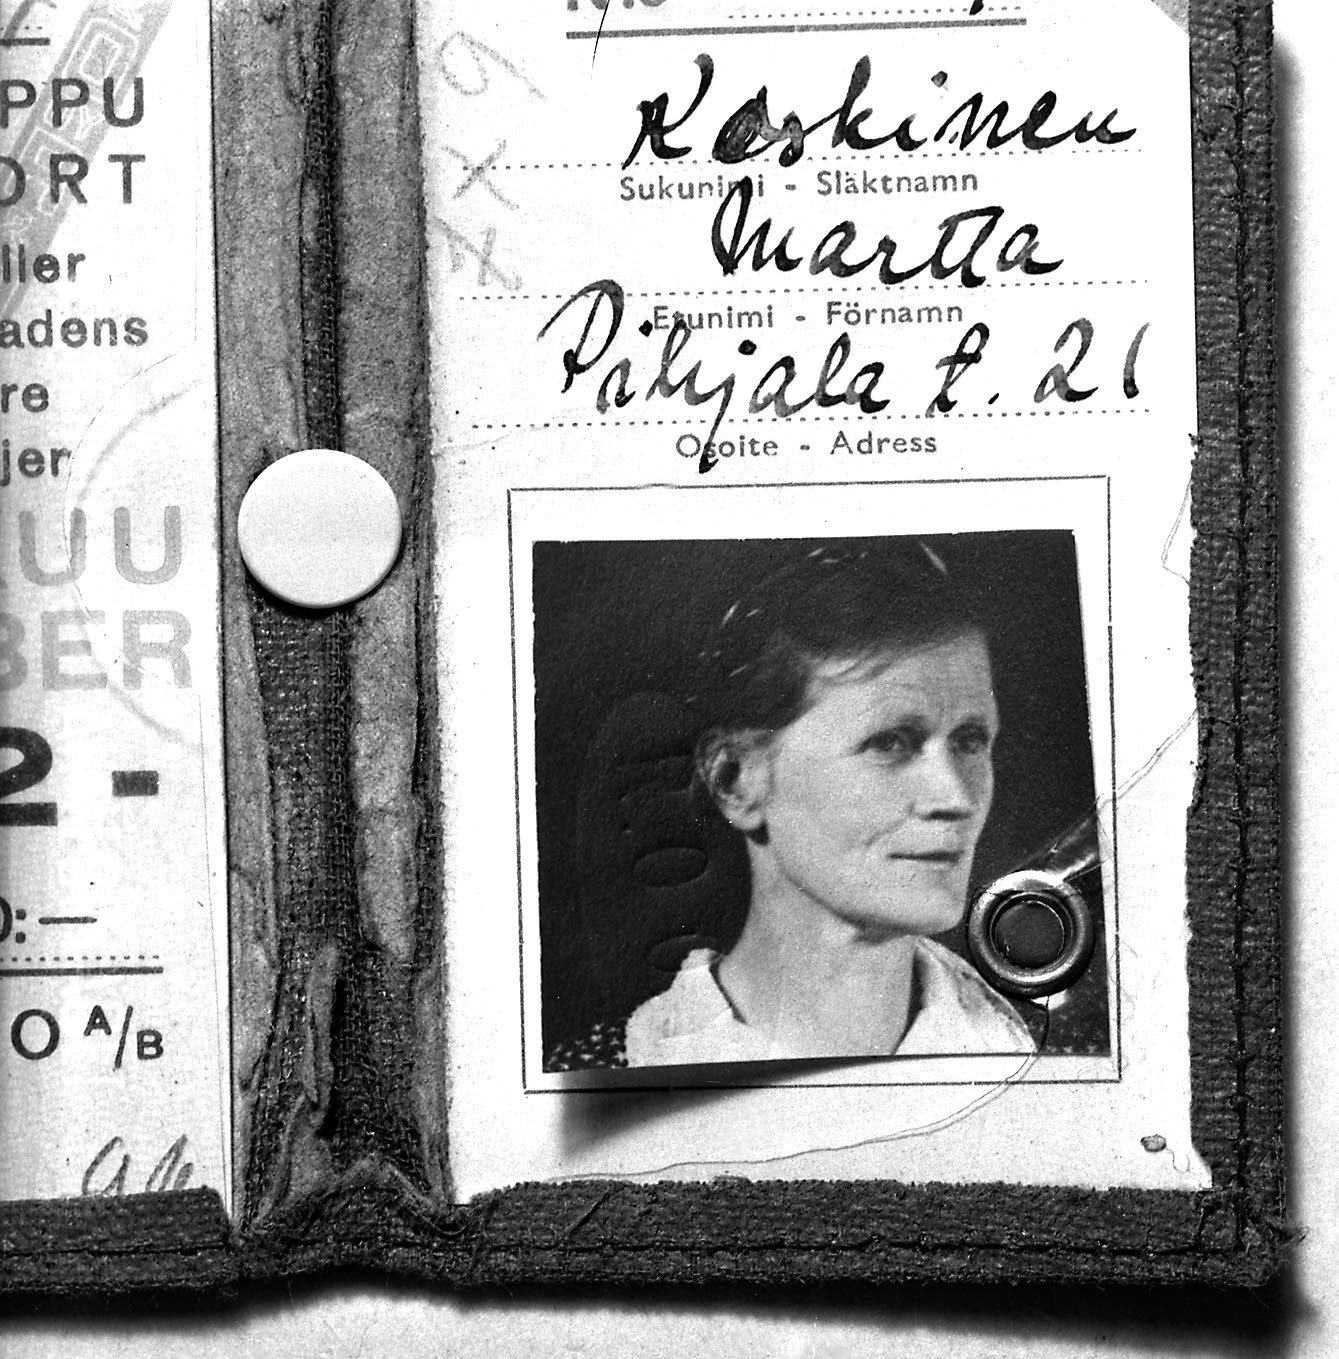 PPU
ORT
ller
adens
re
jer
KUU
BER
2 -
0:—
O A/B
Koskinen
Sukunimi - Släktnamn
Martta
Etunimi - Förnamn
Pihjala t. 21
Osoite - Adress